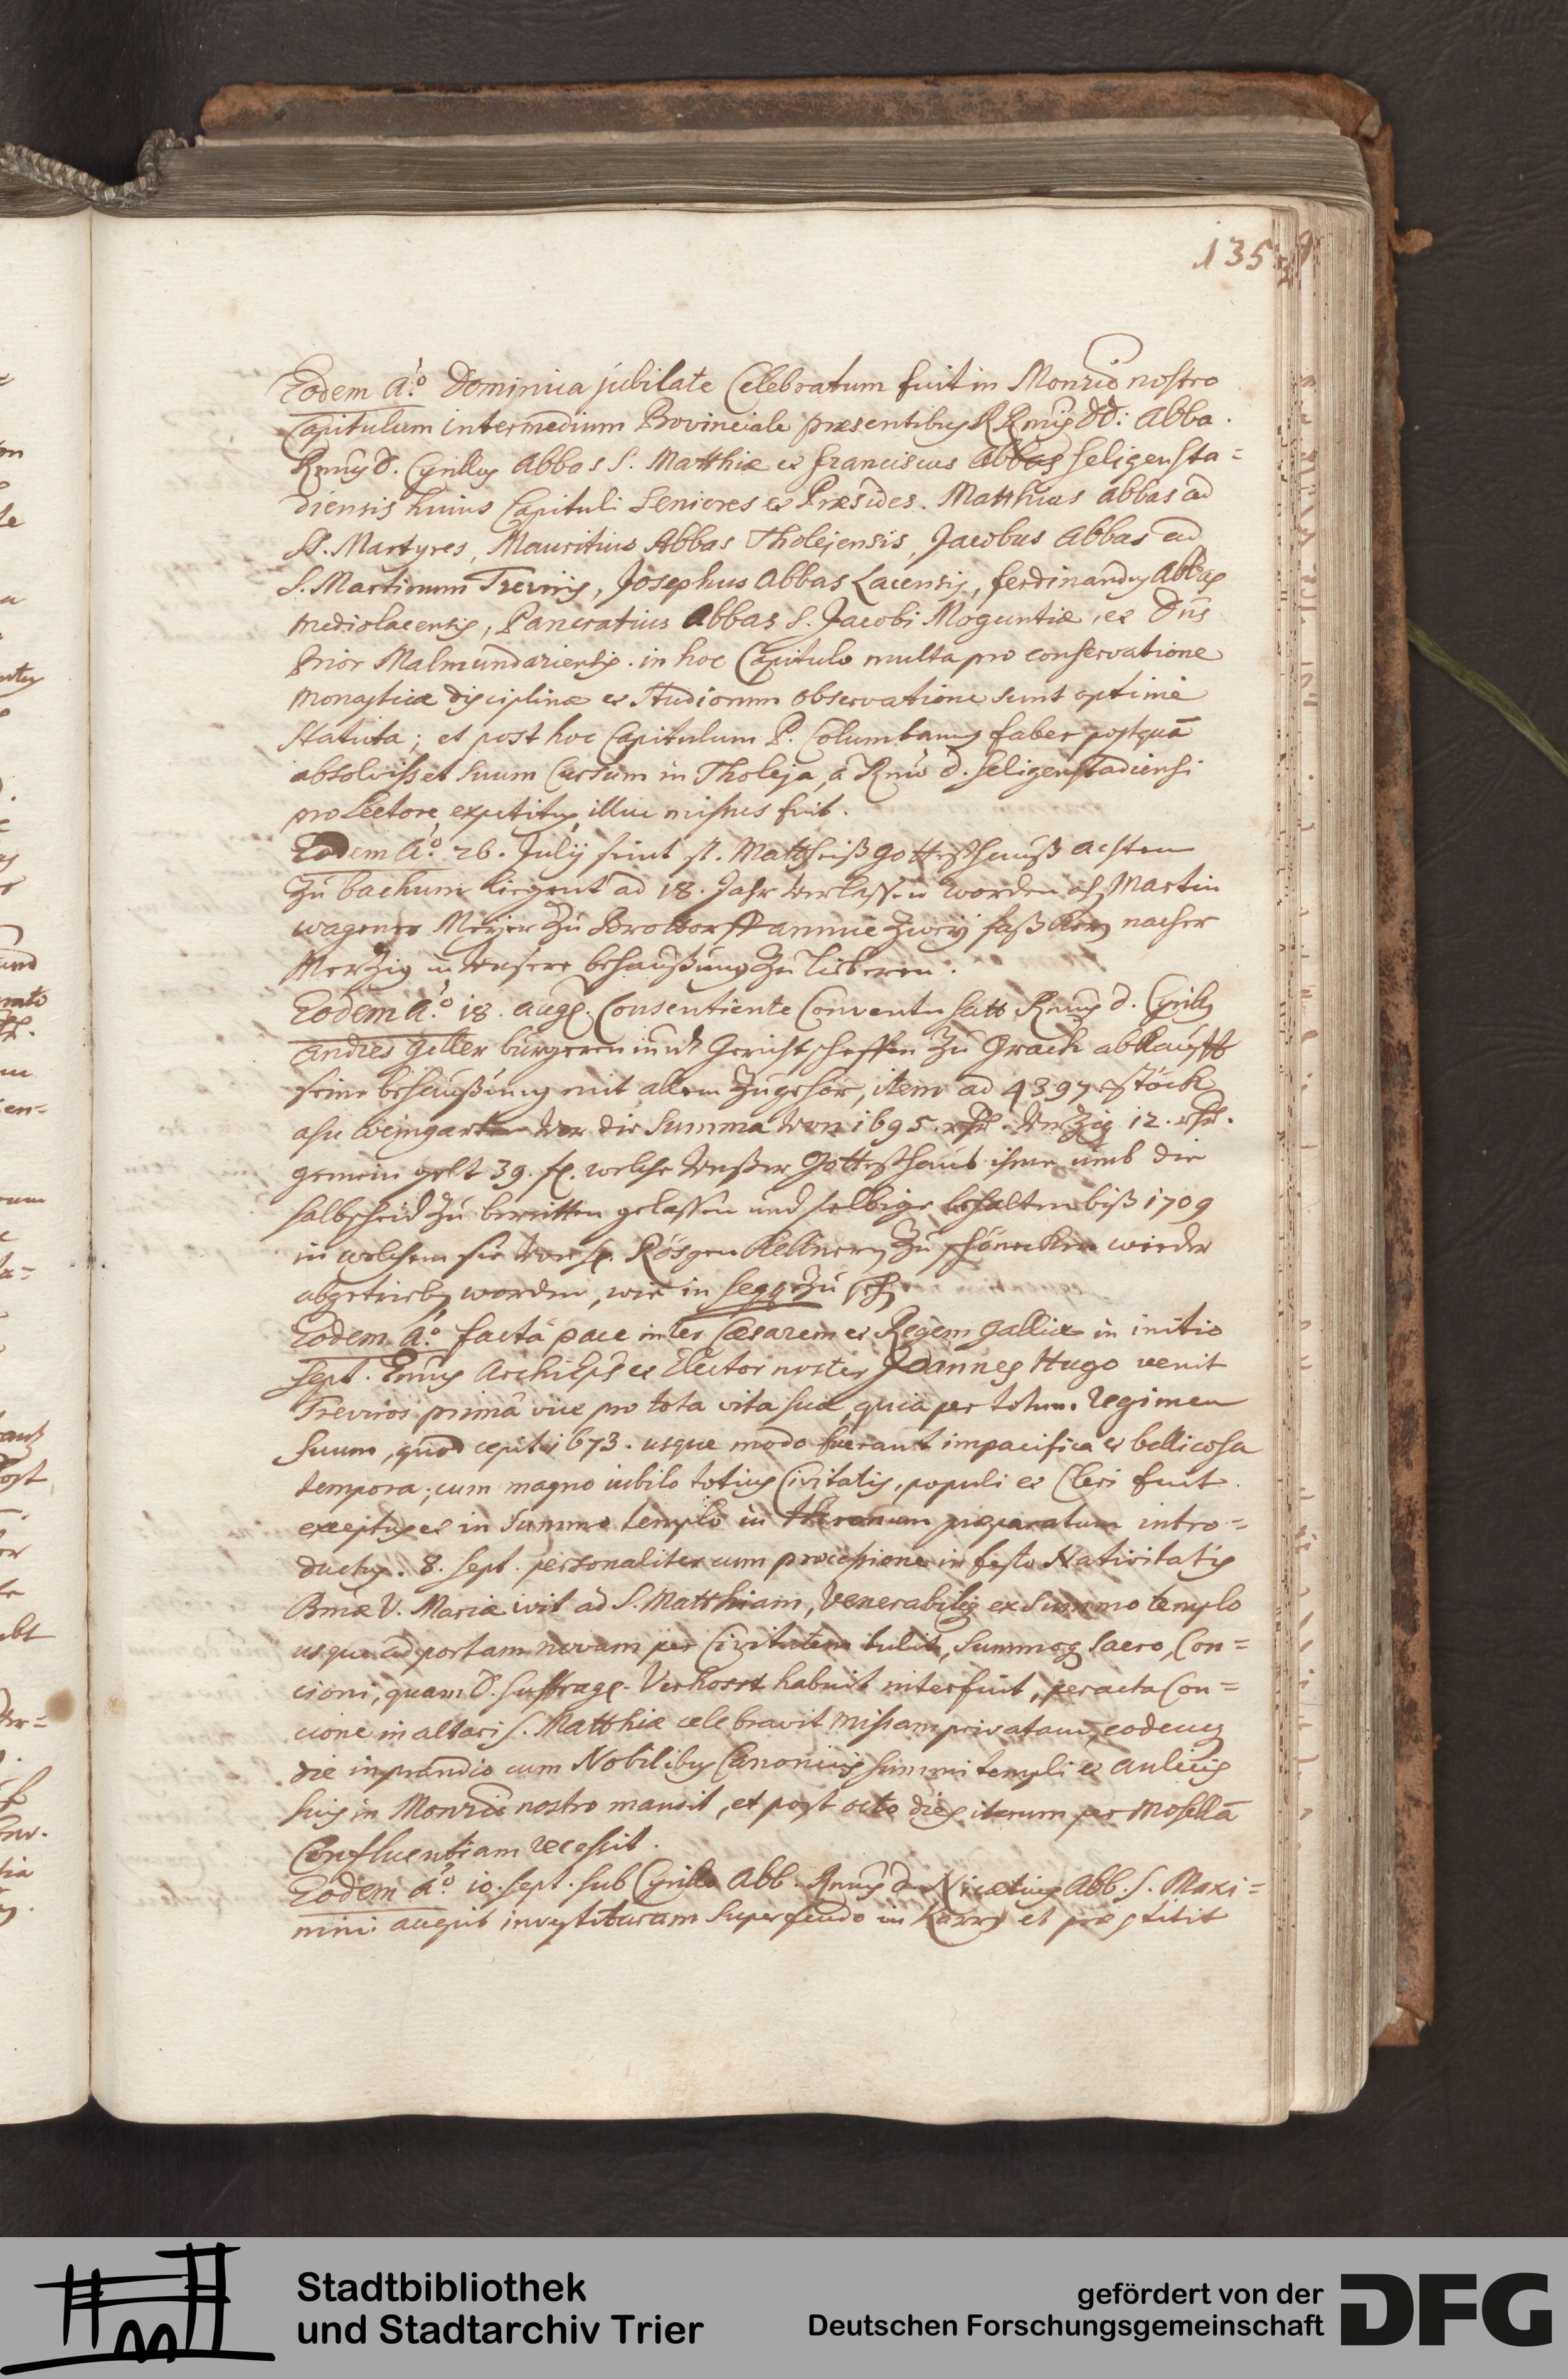 135
Eodem a.o Dominica jubilate Celebratum fuit in Monrio nostro
Capitulum intermedium Provinciale præsentibus RRmis DD: Abba.
Rmus D. Cyrillus Abbas S. Matthiæ et franciscus Abbas seligensta=
diensis huius Capituli Seniores et Præsides. Matthias abbas ad
SS. Martyres, Mauritius Abbas Tholejensis, Jacobus Abbas ad
S. Martinum Treviris, Josephus Abbas Lacensis, ferdinandus Abbas
mediolacensis, Pancratius Abbas S. Jacobi Moguntiæ, et Dns
Prior Malmundariensis. in hoc Capitulo multa pro conservatione
monasticæ disciplinæ et studiorum observatione sunt optime
statuta; et post hoc Capitulum P. Columbanus faber postquā
absolvisset suum Cursum in Tholeja, a Rmo d. seligenstadiensi
pro Lectore expetitus illuc missus fuit.
Eodem a.o 26. Julij seint st. Mattheiß gotteßhauß achten
zu bachum liegent ad 18. Jahr verlassen worden ahn Martin
wagener Meyer zu Brottorff annue zwey faß Korn nacher
Mertzig in unsere behaußung zu lieberen.
Eodem a.o 18. aug. Consentiente Conventu hatt Rmus d. Cyrillus
andres geller burgeren undt Gerichtscheffen zu Grach abkaufft
seine behaußung mit allem zugehör, item ad 4397 stöck
ahn weingarten vor die Summa von 1695. rthr. Verzig 12. rthr.
gemein gelt 39. fl. welche unßer Gotteßhauß ihme umb die
halbscheid zu berritten gelassen und selbige behalten biß 1709
in welchem sie von h. Rösgen Kellnern zu schönecken wieder
abgetrieben worden, wie in seqq. zu sehen
Eodem a.o factâ pace inter Cæsarem et Regem galliæ in initio
sept. Emus Archieps et Elector noster Joannes Hugo venit
Treviros primâ vice pro tota vita sua, quia per totum regimen
suum, quod cepit 1673. usque modo fuerant impacifica et bellicosa
tempora; cum magno iubilo totius Civitatis, populi et Cleri fuit
exceptus et in Summo templo in thronum præparatum intro=
ductus. 8. sept. personaliter cum processione in festo Nativitatis
Bmæ V. Mariæ ivit ad S. Matthiam, Venerabile ex Summo templo
usque ad portam novam per Civitatem tulit, summoq sacro, Con=
cioni, quam D. suffrag. Verhorst habuit interfuit, peracta Con=
cione in altari S. Matthiæ celebravit missam privatam, eodemq
die in prandio cum Nobilibus Canonicis summi templi et aulicis
suis in Monrio nostro mansit, et post octo dies iterum per Mosellā
Confluentiam recessit.
Eodem a.o 10. sept. sub Cyrillo Abb. Rmus d. Nicetius Abb. S. Maxi=
mini accepit investituram super feudo in Karrs et præstitit
Stadtbibliothek
und Stadtarchiv Trier
gefördert von der
Deutschen Forschungsgemeinschaft
DFG